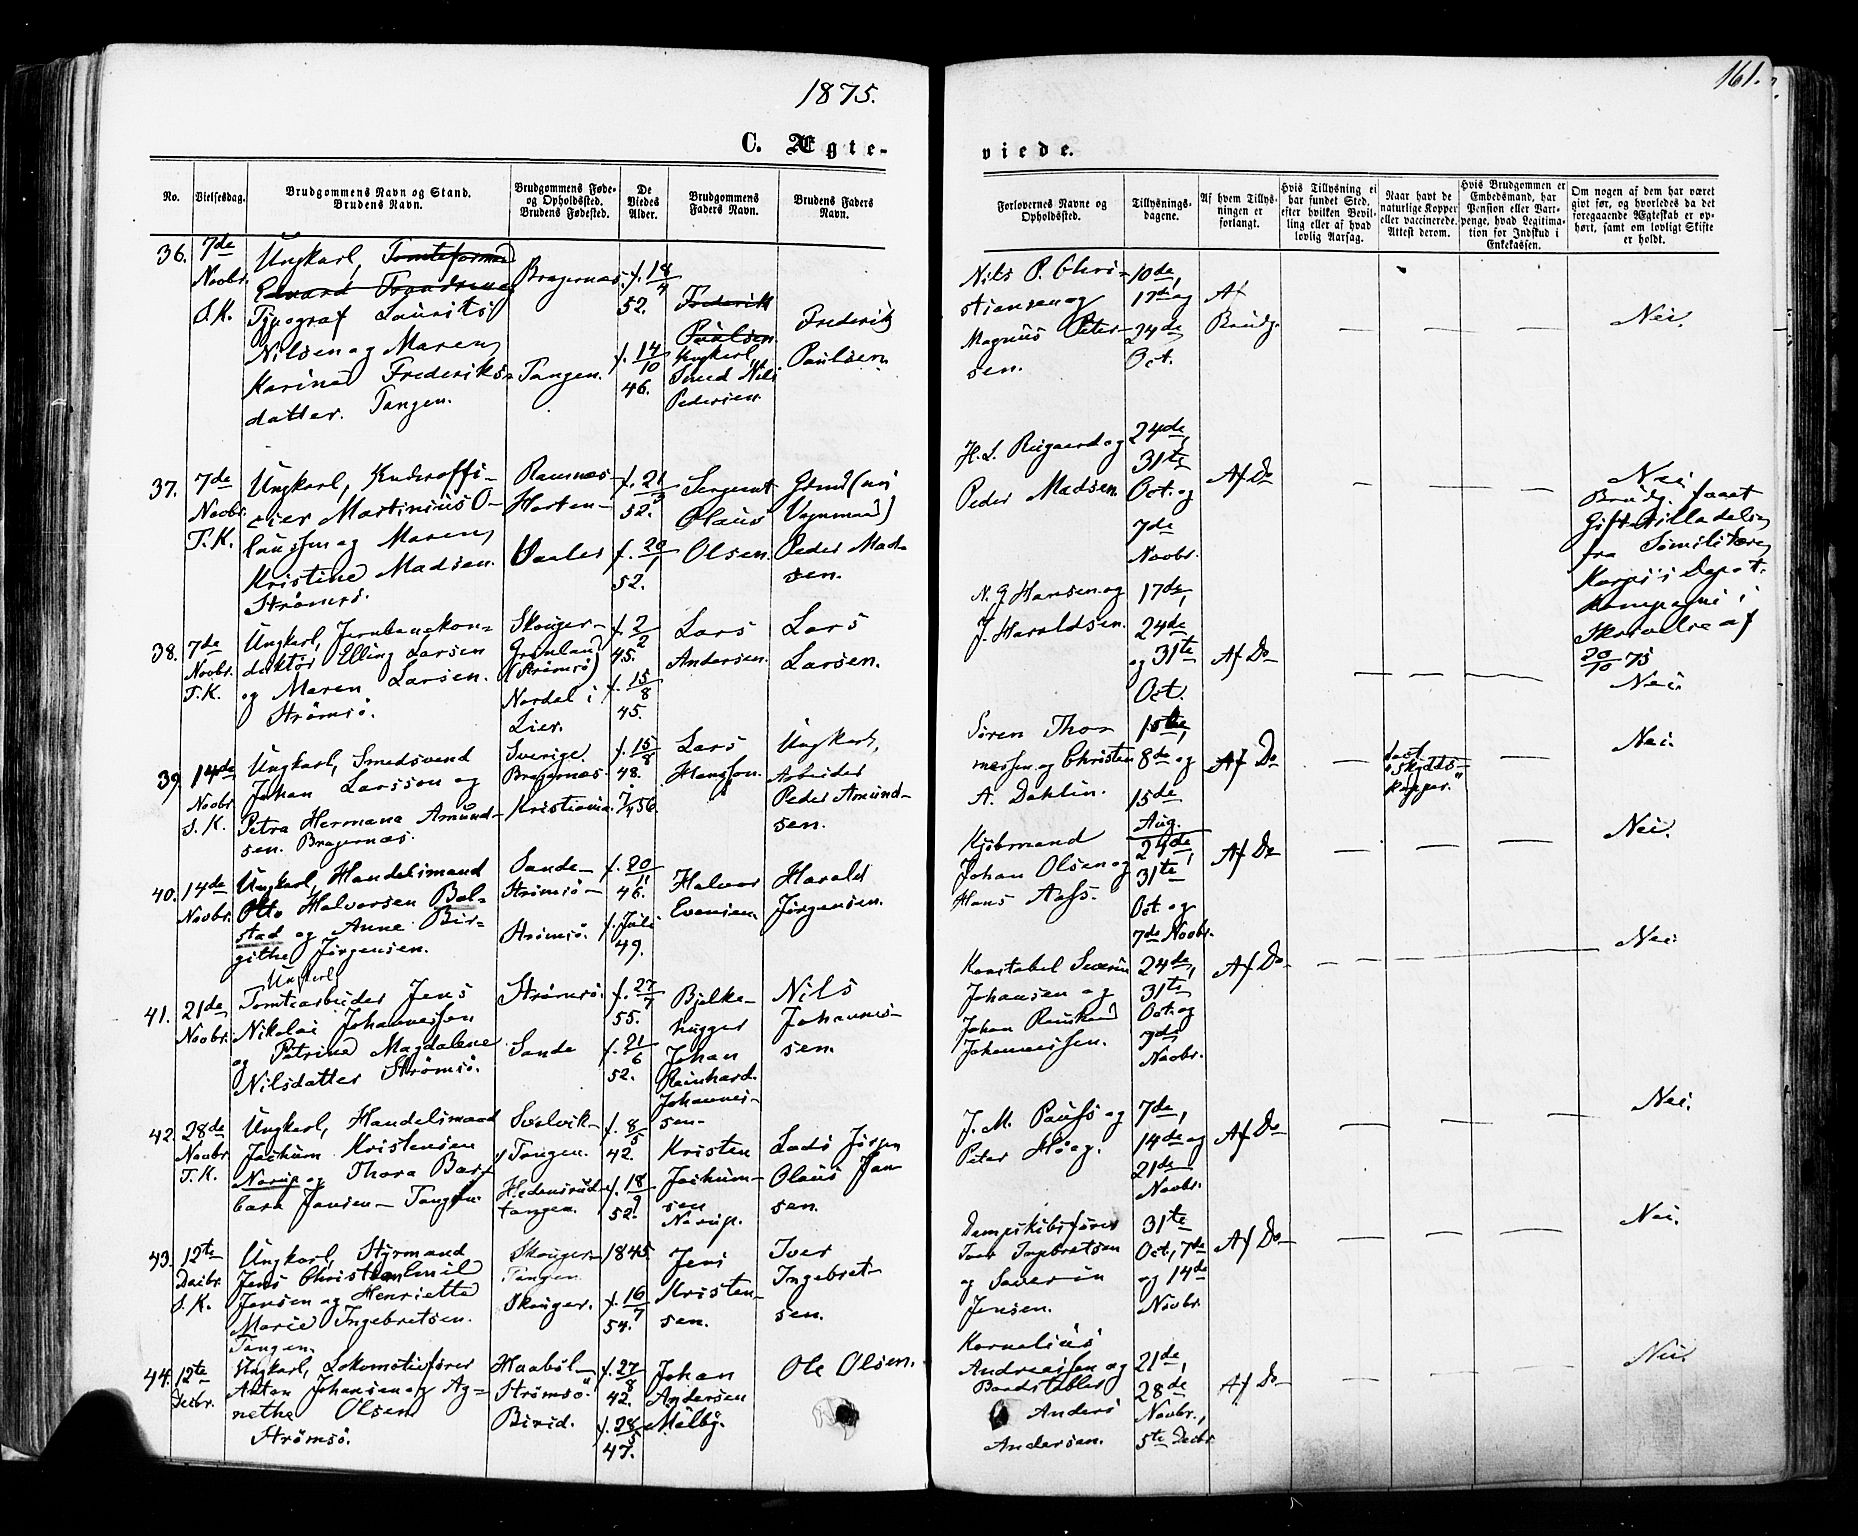 1875.
161.
C. Ægte-
viede.
No.
Vielsesdag.
Brudgommens Navn og Stand.
Brudens Navn.
Brudgommens Føde-
og Opholdssted.
Brudens Fødested.
De
Viedes
Alder.
Brudgommens
Faders Navn.
Brudens Faders
Navn.
Forlovernes Navne og
Opholdssted.
Tillysnings-
dagene.
Af hvem Tillys-
ningen er
forlangt.
Hvis Tillysning ei
har fundet Sted,
efter hvilken Bevil-
ling eller af hvad
lovlig Aarsag.
Naar havt de
naturlige Kopper
eller vaccinerede.
Attest derom.
Hvis Brudgommen er
Embedsmand, har
Pension eller Vart-
penge, hvad Legitima-
tion for Indskud i
Enkekassen.
Om nogen af dem har været
givt før, og hvorledes da det
foregaaende Ægteskab er op-
hørt, samt om lovligt Skifte
er holdt.
36.
7de
Novbr.
S.K.
Ungkarl, Tomteformand
Edvard Frandsen
Typograf Laurits
Nilsen og Maren
Karine Frederiks-
datter. Tangen.
Bragernæs.
Tangen.
f. 18/4
52.
f. 14/10
46.
Frederik
Paulsen
Ungkarl
Smed Nils
Pedersen.
Frederik
Paulsen.
Nils P. Chri-
stiansen og
Magnus Peter-
sen.
10de,
17de og
24de
Oct.
Af
Brudg.
— — —
Nei.
37.
7de
Novbr.
T.K.
Ungkarl, Underoffi-
cier Martinius O-
laussen og Maren
Kristine Madsen.
Strømsø.
Ramnæs
Horten-
Vaaler
f. 21/3
52.
f. 20/1
52.
Sergeant
Olaus
Olsen.
Gmd (nu
Vognmand)
Peder Mad-
sen.
H. L. Rugaard og
Peder Madsen.
24de,
31te
Oct. og
7de
Novbr.
Af Do
— — —
Nei
Brudg. faaet
Gift.tilladelse
fra Sømilitære
Korps's Depot.
Kompagni i
Skrivelse af
20/10 75
38.
7de
Novbr.
T.K.
Ungkarl, Jernbanekon-
duktør Elling Larsen
og Maren Larsen.
Strømsø.
Skouger-
Grønland
(Strømsø)
Nordal i
Lier.
f. 2/2
45.
f. 15/8
45.
Lars
Andersen.
Lars
Larsen.
N. G Hansen og
J. Haraldsen.
17de,
24de
og 31te
Oct.
Af Do
— — —
Nei.
39.
14de
Novbr.
S.K.
Ungkarl, Smedsvend
Johan Larsson og
Petra Hermana Amund-
sen. Bragernæs.
Sverige.
Bragernæs.
Kristiania.
f. 15/8
48.
7/4 56.
Lars
Hansson.
Ungkarl,
Arbeider
Peder Amund-
sen.
Søren Thor
messen og Christen
A. Dahlin.
1ste,
8de og
15de
Aug.
Af Do
—
havt
"Skydds-
kopper."
—
Nei.
40.
14de
Novbr.
Ungkarl, Handelsmand
Otto Halvorsen Bol-
stad og Anne Bir-
githe Jørgensen.
Sande-
Strømsø-
Strømsø.
f. 20/11
46.
f. Juli
49.
Halvor
Evensen.
Harald
Jørgensen.
Kjøbmand
Johan Olsen og
Hans Aass.
24de,
31te
Oct. og
7de Novbr.
Af Do
— — —
Nei.
41.
21de
Novbr.
Ungkarl
Tomtearbeider Jens
Nikolai Johannessen
og Petrine Magdalene
Nilsdatter Strømsø.
Strømsø.
Sande
f. 27/7
55.
f. 21/6
52.
Bjelke-
hugger
Johan
Reinhard
Johannes-
sen.
Nils
Johannes-
sen.
Konstabel Severin
Johansen og
Johan Reinhard
Johannessen.
24de,
31te
Oct. og
7de
Novbr.
Af Do
— — —
Nei.
42.
28de
Novbr.
T.K.
Ungkarl, Handelsmand
Jochum Kristensen
Norup og Thora Bar-
bara Jansen- Tangen.
Svelvik-
Tangen.
Hedensrud-
tangen.
f. 8/5
42.
f. 18/9
52.
Kristen
Jochum-
sen
Norup.
Lods Jørgen
Olaus Jan
sen.
J. M. Pauss og
Peter Høeg.
7de,
14de og
21de
Novbr.
Af Do
— — —
Nei.
43.
12te
Decbr.
S.K.
Ungkarl, Styrmand
Jens Christian Emil
Jensen og Henriette
Marie Ingebretsen.
Tangen.
Skouger-
Tangen
Skouger.
1845.
f. 16/7
54.
Jens
Kristen-
sen.
Iver
Ingebret-
sen.
Dampskibsfører
Iver Ingebretsen
og Severin
Jensen.
31te
Oct., 7de
og 14de
Novbr.
Af Do
— — —
Nei.
44.
12te
Decbr.
Ungkarl, Lokomotivfører
Anton Johansen og Ag-
nethe Olsen
Strømsø.
Haabøl-
Strømsø.
Birid.
f. 27/8
42.
f. 28/5
47.
Johan
Andersen
Melby.
Ole Olsen.
Kornelius
Andreassen og
Anders
Andersen.
21de,
28de
Novbr.,
5te Decbr
Af Do
— — —
Nei.